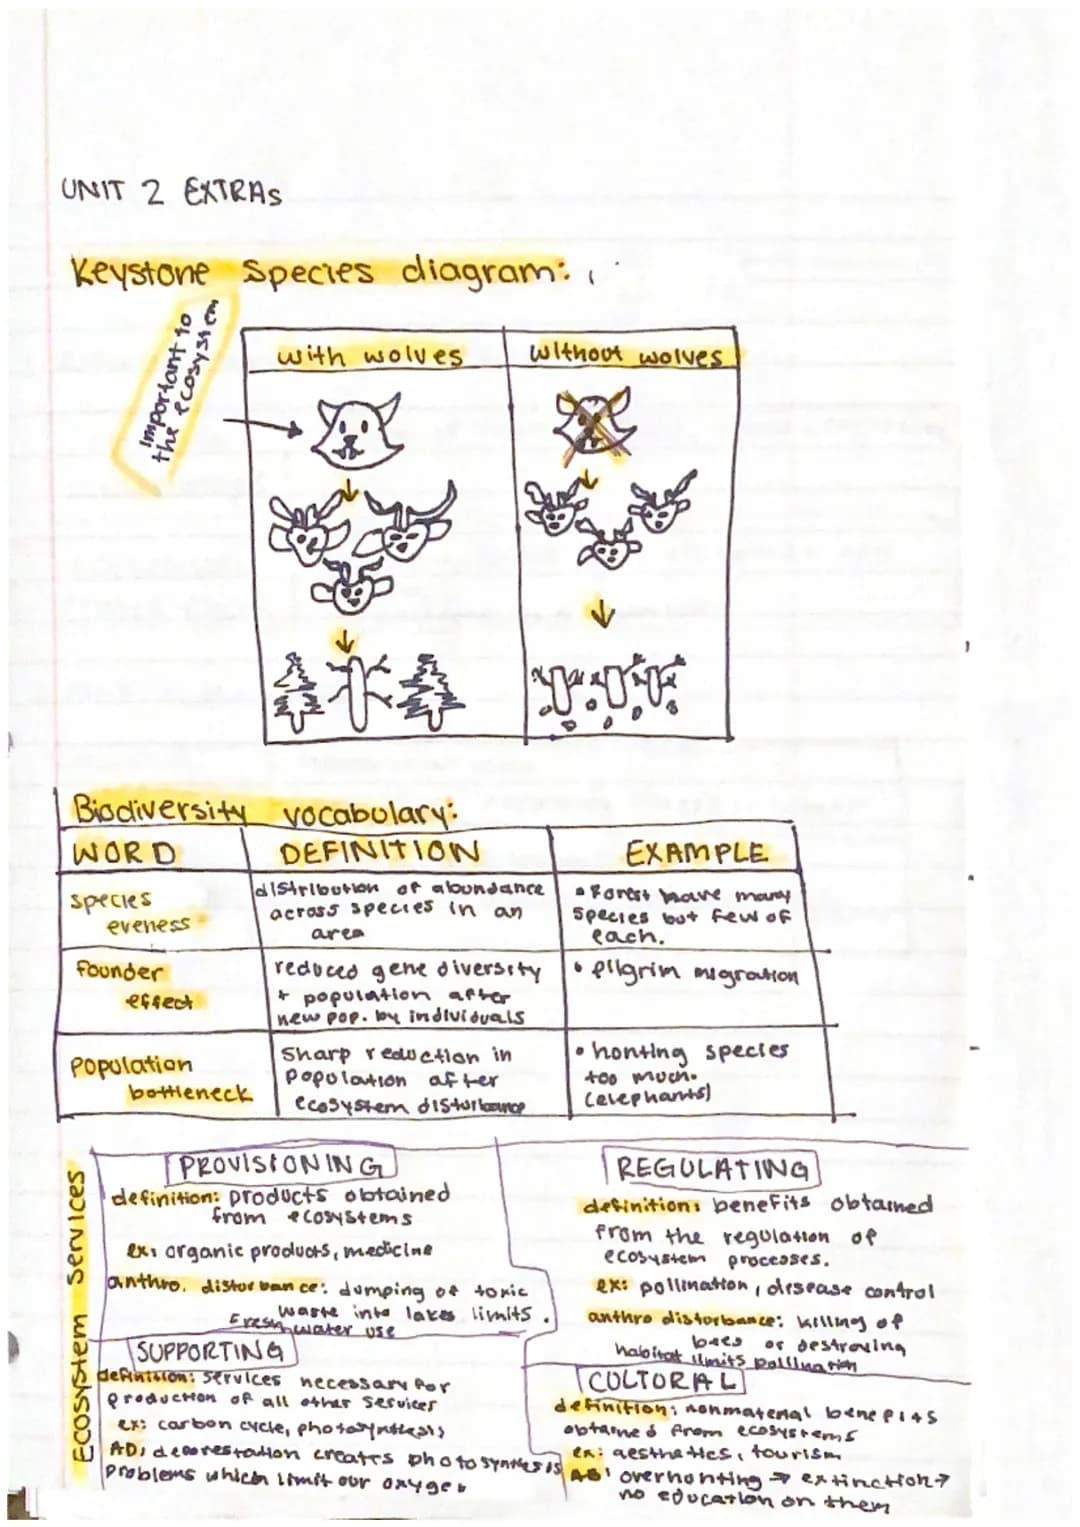 UNIT 2 EXTRAS
Keystone Species diagram:
important to
the ecosystem
with wolves
without wolves
Biodiversity vocabulary:
WORD
DEFINITION
EXAMPLE
species
eveness
distribution of abundance
across species in an
area
• Forest have many
species but few of
each.
founder
effect
reduced gene diversity
+ population after
new pop. by individuals
• pilgrim migration
population
bottleneck
sharp reduction in
population after
ecosystem disturbance
• honting species
too much.
(elephants)
Ecosystem Services
PROVISIONING
definition: products obtained
from ecosystems
ex: organic products, medicine
anthro. disturbance: dumping of toxic
waste into lakes limits.
Fresh water use
REGULATING
definition: benefits obtained
from the regulation of
ecosystem processes.
ex: pollination, disease control
anthro disturbance: killing of
bees or destroying
habitat limits pollination
SUPPORTING
definition: services necessary for
production of all other services
ex: carbon cycle, photosynthesis
AD: deforestation creates photosynthesis
problems which limit our oxygen
CULTORAL
definition: nonmaterial benefits
obtained from ecosystems
ex: aesthetics, tourism
AD: overhonting → extinction →
no education on them